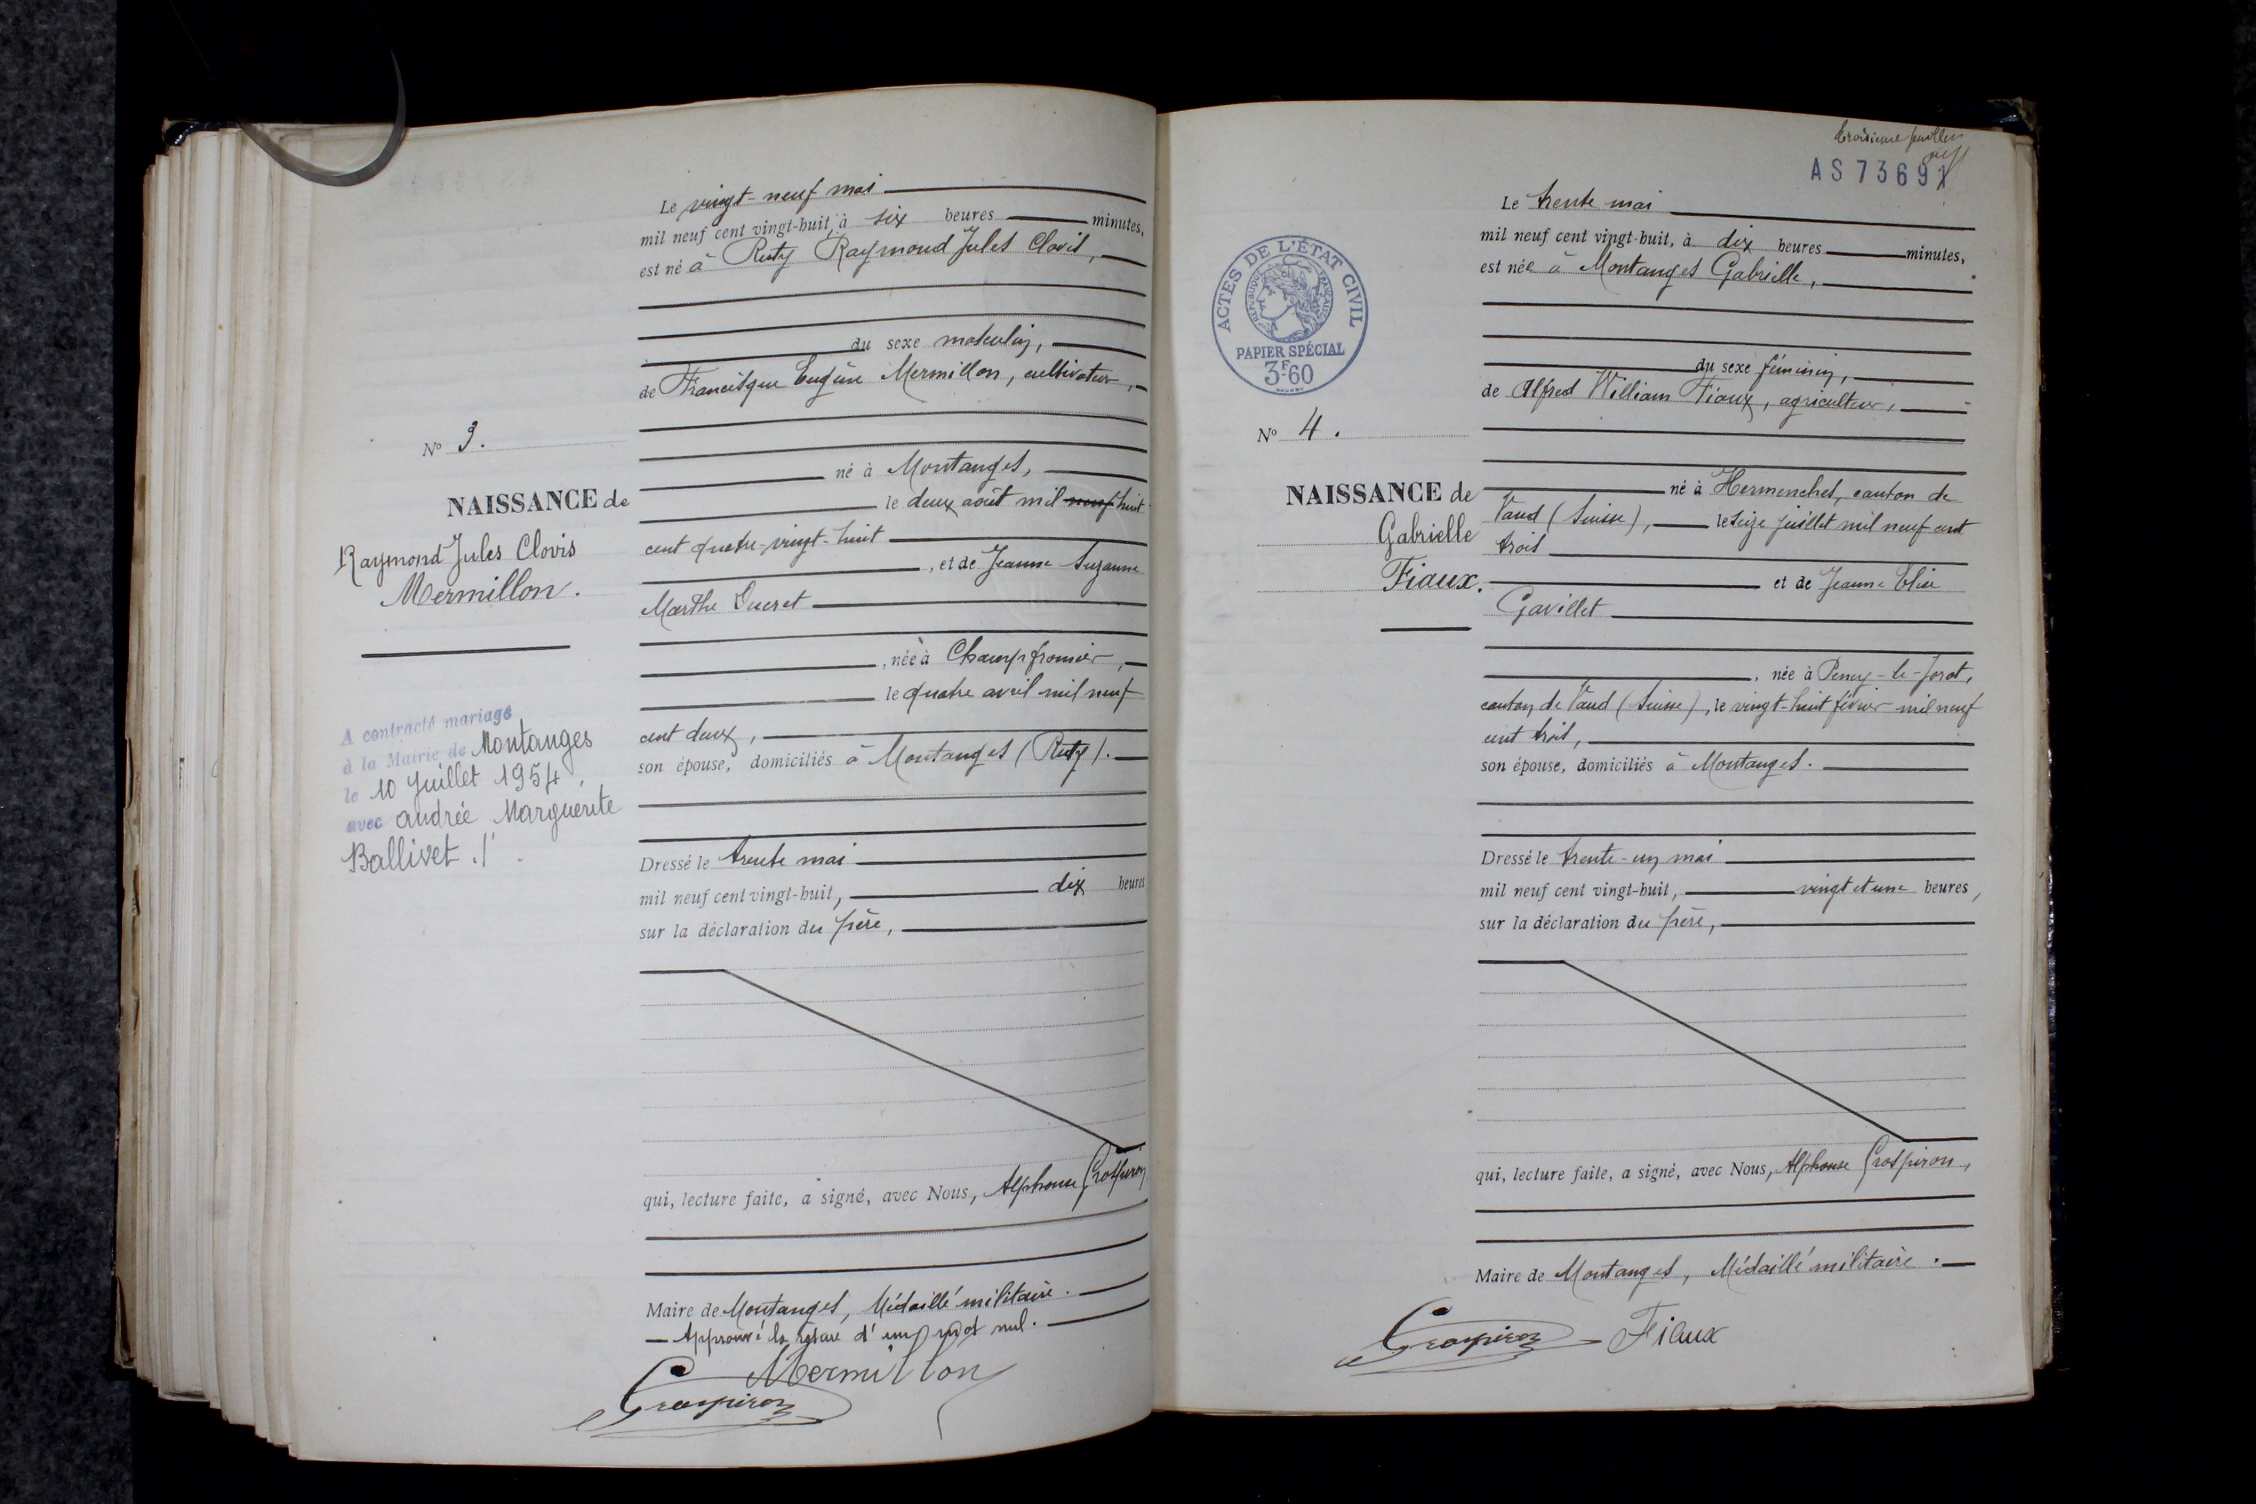 Le vingt-neuf mai
mil neuf cent vingt-huit, à six heures minutes,
est né à Ruty Raymond Jules Clovis,
du sexe masculin,
de Francisque Eugène Mermillon, cultivateur,
né à Montanges,
le deux août mil neuf huit
cent quatre-vingt-huit
, et de Jeanne Suzanne
Marthe Ducret
, née à Champfromier,
le quatre avril mil neuf
cent deux,
son épouse, domiciliés à Montanges (Ruty).
Dressé le trente mai
mil neuf cent vingt-huit, dix heures
sur la déclaration du père,
qui, lecture faite, a signé, avec Nous, Alphonse Grospiron
Maire de Montanges, Médaillé militaire.
Approuvé la rature d'un mot nul.
Mermillon
Grospiron
No 3.
NAISSANCE de
Raymond Jules Clovis
Mermillon.
A contracté mariage
à la Mairie de Montanges
le 10 Juillet 1954,
avec Andrée Marguerite
Ballivet ./.
troisième feuillet
AS 73691
ACTES DE L'ÉTAT CIVIL
RÉPUBLIQUE FRANÇAISE
PAPIER SPÉCIAL
3F60
No 4.
NAISSANCE de
Gabrielle
Fiaux.
Le trente mai
mil neuf cent vingt-huit, à dix heures minutes,
est née à Montanges Gabrielle,
du sexe féminin,
de Alfred William Fiaux, agriculteur,
né à Hermenches, canton de
Vaud (Suisse), le seize juillet mil neuf cent
trois
et de Jeanne Elise
Gavillet
, née à Peney-le-Jorat,
canton de Vaud (Suisse), le vingt-huit février mil neuf
cent trois,
son épouse, domiciliés à Montanges.
Dressé le trente-un mai
mil neuf cent vingt-huit, vingt et une heures,
sur la déclaration du père,
qui, lecture faite, a signé, avec Nous, Alphonse Grospiron,
Maire de Montanges, Médaillé militaire.
Grospiron Fiaux